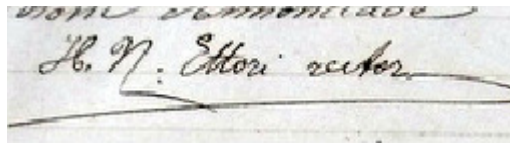 H. N. Ettori rector